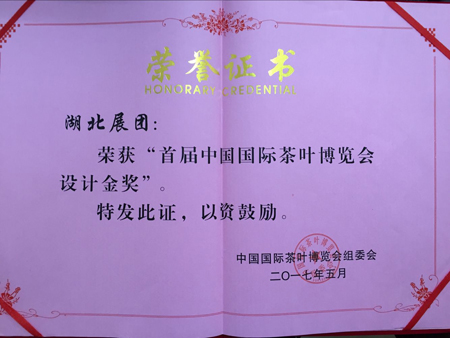 荣誉证书
HONORARY CREDENTIAL
湖北展团：
荣获“首届中国国际茶叶博览会
设计金奖”。
特发此证，以资鼓励。
中国国际茶叶博览会组委会
二〇一七年五月